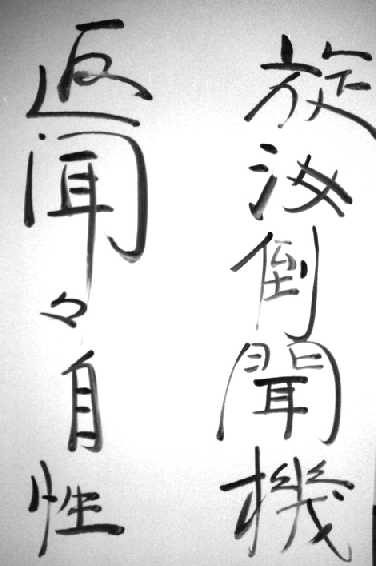 旋汝倒聞機
返聞々自性